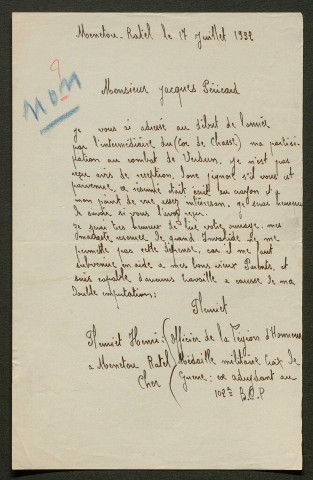 Menetou-Ratel le 17 Juillet 1932
NON
Monsieur Jacques Péricard
Je vous ai adressé au début de l'année
par l'intermédiaire du (Cor de Chasse) ma partici-
pation au combat de Verdun. Je n'est pas
reçu avis de reception, donc j'ignore s'il vous et
parvenue, ce résumé était écrit au crayon et a
mon point de vue assez intéressan. Je serai heureux
de savoir si vous l'avez reçu.
Je serai tres heureux de lire votre ouvrage. mes
modeste resource de grand Invalide ne me
permette pas cette dépense, car il me faut
subvenir en aide a mes bons vieux Parents, et
suis capable d'aucuns travaille a cause de ma
double imputation:
Fleuriet
Fleuriet Henri: Officier de la Légion d'Honneur
a Menetou Ratel Médaille militaire Croix de
Cher Guerre: ex adjudant au
102e B.C.P